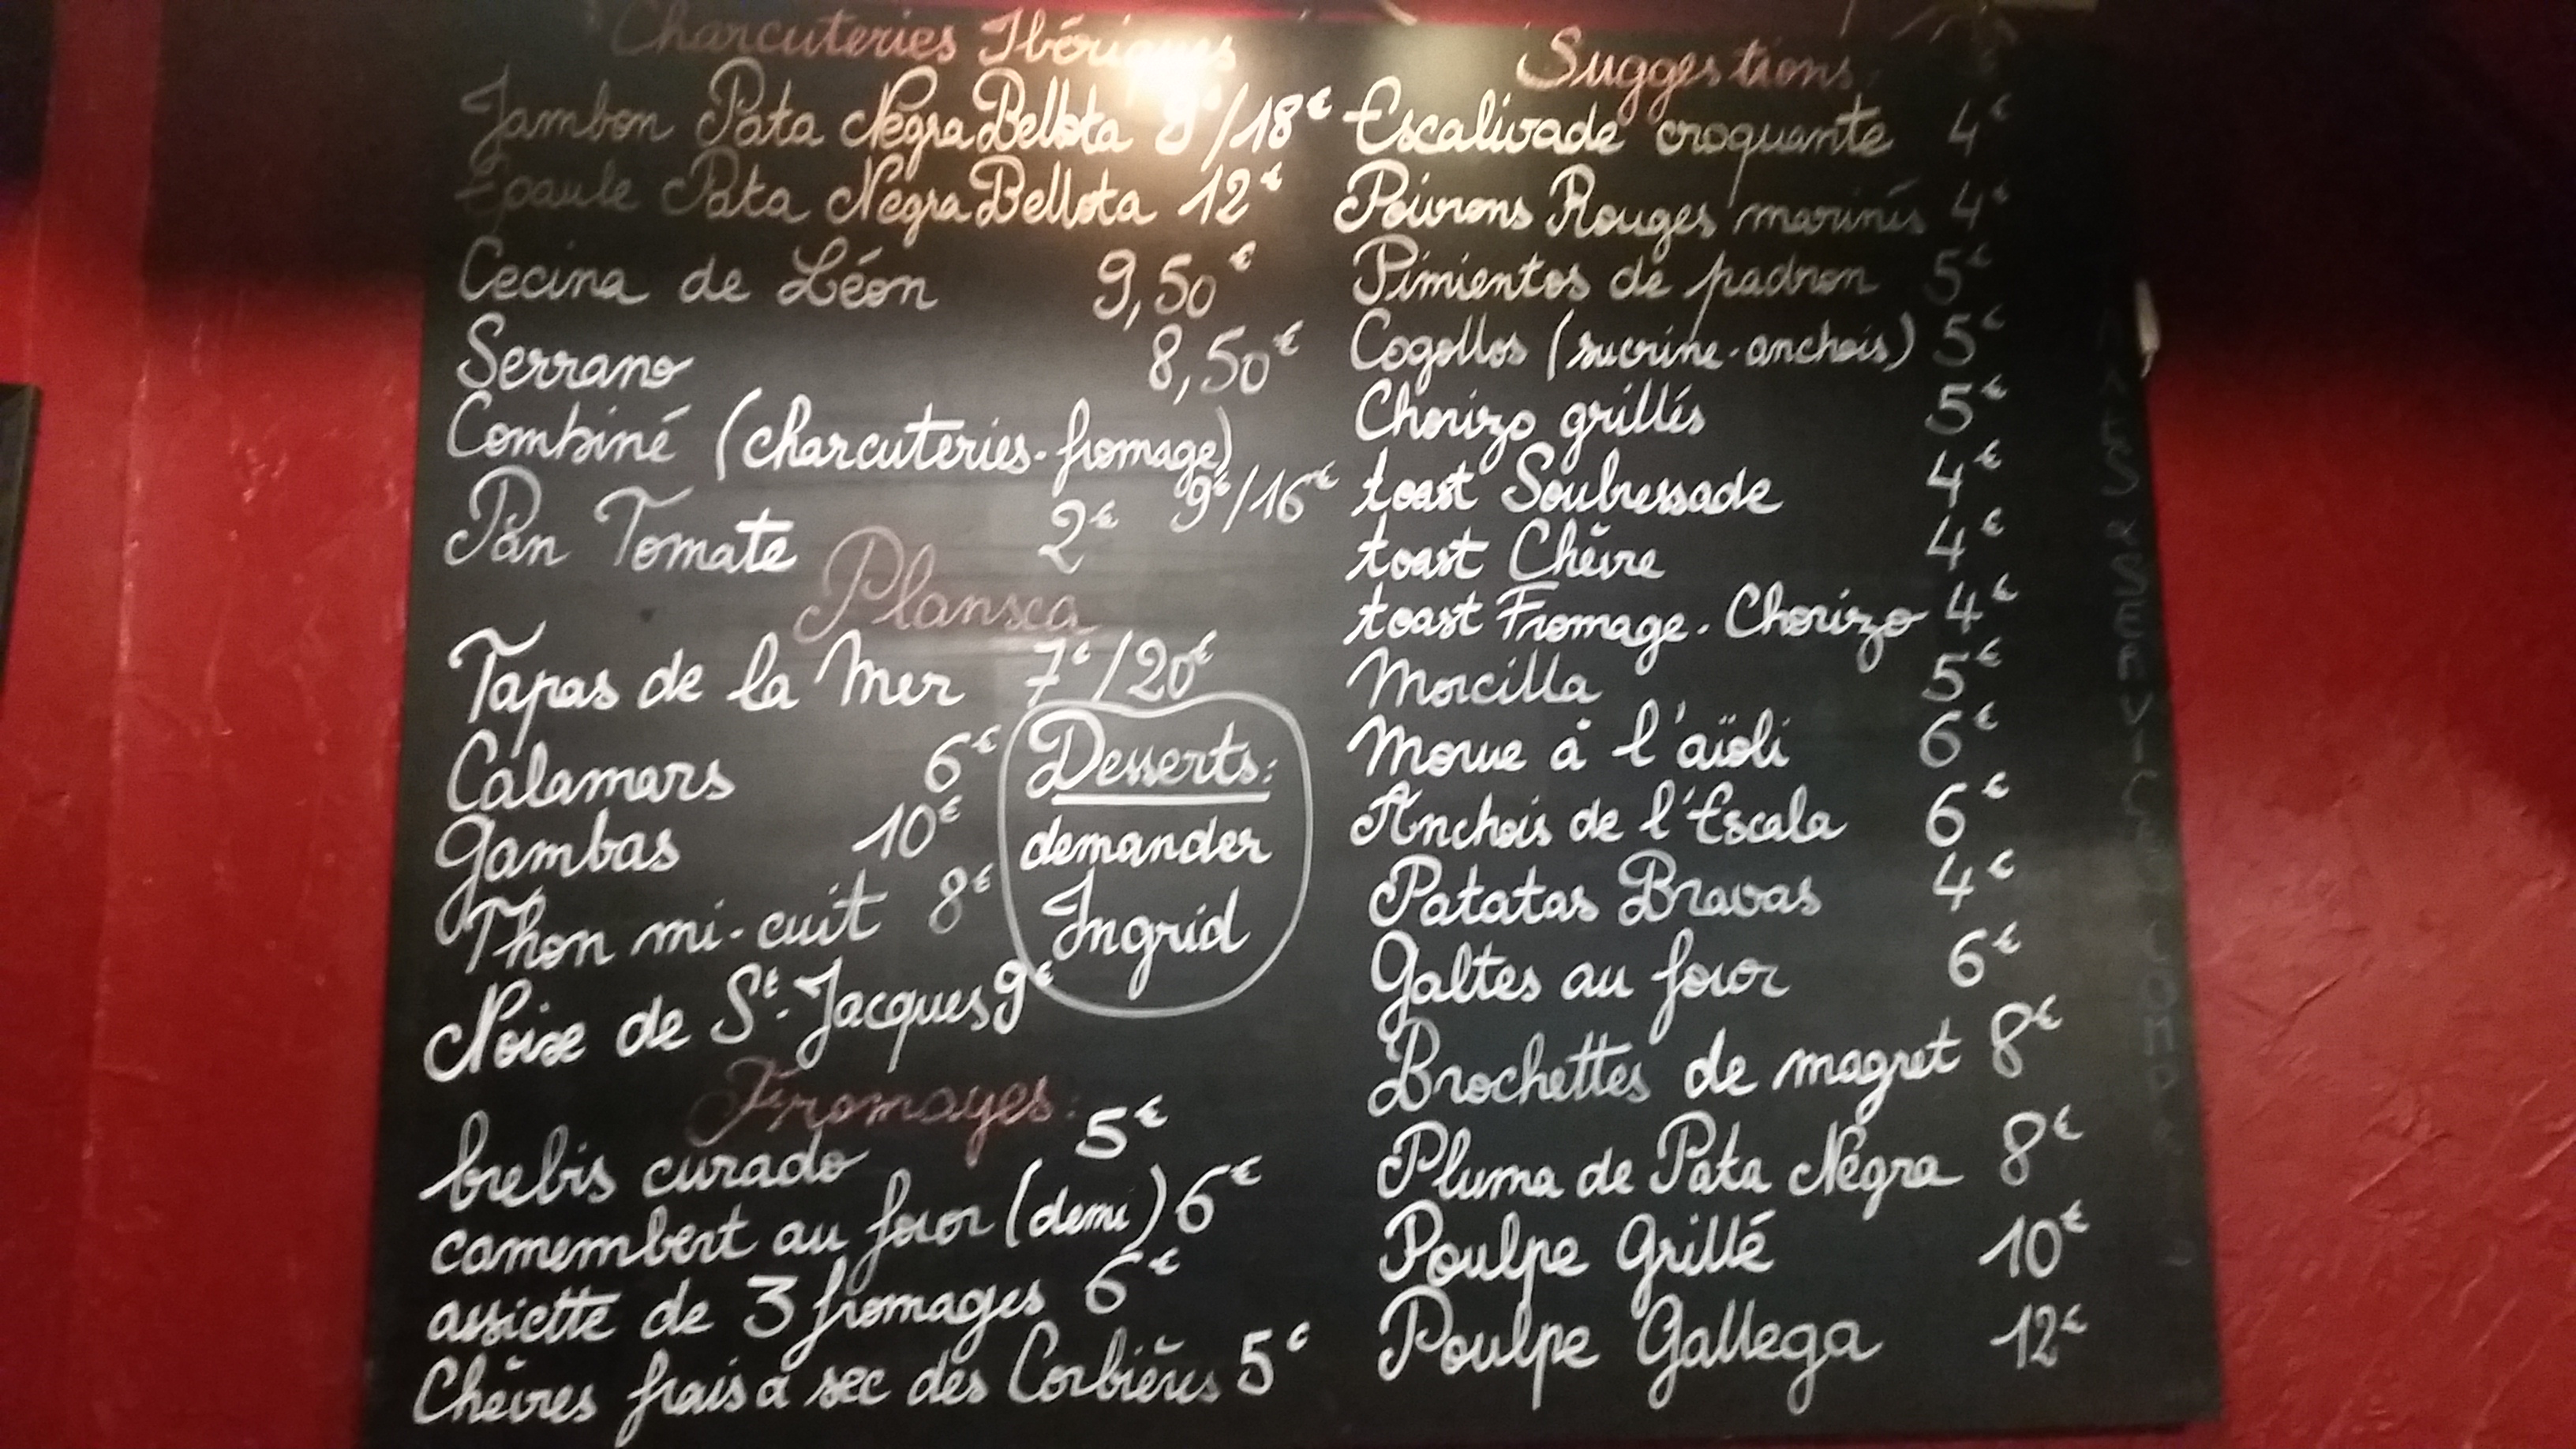 Charcuteries Ibériques
Jambon Pata Négra Bellota 9€/18€
Épaule Pata Négra Bellota 12€
Cecina de Léon 9,50€
Serrano 8,50€
Combiné (charcuteries-fromage)
9€/16€
Pan Tomate 2€
Plansca
Tapas de la Mer 7€/20€
Calamars 6€
Gambas 10€
Thon mi-cuit 8€
Noix de St. Jacques 9€
Desserts:
demander
Ingrid
Fromages:
brebis curado 5€
camembert au four (demi) 6€
assiette de 3 fromages 6€
Chèvres frais à sec des Corbières 5€
Suggestions:
Escalivade croquante 4€
Poivrons Rouges marinés 4€
Pimientos de padron 5€
Cogollos (sucrine-anchois) 5€
Chorizo grillés 5€
toast Soubressade 4€
toast Chèvre 4€
toast Fromage-Chorizo 4€
Morcilla 5€
Morue à l'aïoli 6€
Anchois de l'Escala 6€
Patatas Bravas 4€
Galtes au four 6€
Brochettes de magret 8€
Pluma de Pata Négra 8€
Poulpe Grillé 10€
Poulpe Gallega 12€